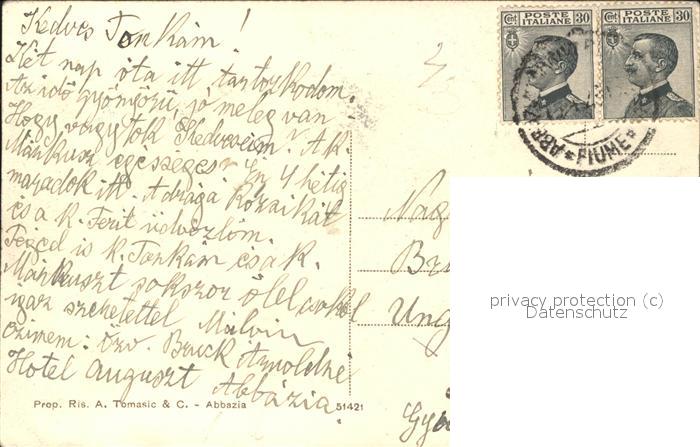 Kedves Tonkám!
Két nap óta itt tartozkodom.
Az idő gyönyörű, jó meleg van
Hogy vagytok Kedveseim? A k.
Márkusz egészséges? Én 4 hétig
maradok itt. A drága Rózsikát
és a k. Ferit üdvözlöm.
Téged is k. Tonkám és a k.
Márkuszt sokszor ölel csókol
igaz szeretettel Malvin
Czimem: Özv. Bruck Arnoldné
Hotel Auguszt Abbázia.
Prop. Ris. A. Tomasic & C. - Abbazia 51421
Nag
Bru
Ung
Cent 30 POSTE ITALIANE
POSTE ITALIANE 30
ABB
* FIUME *
privacy protection (c)
Datenschutz